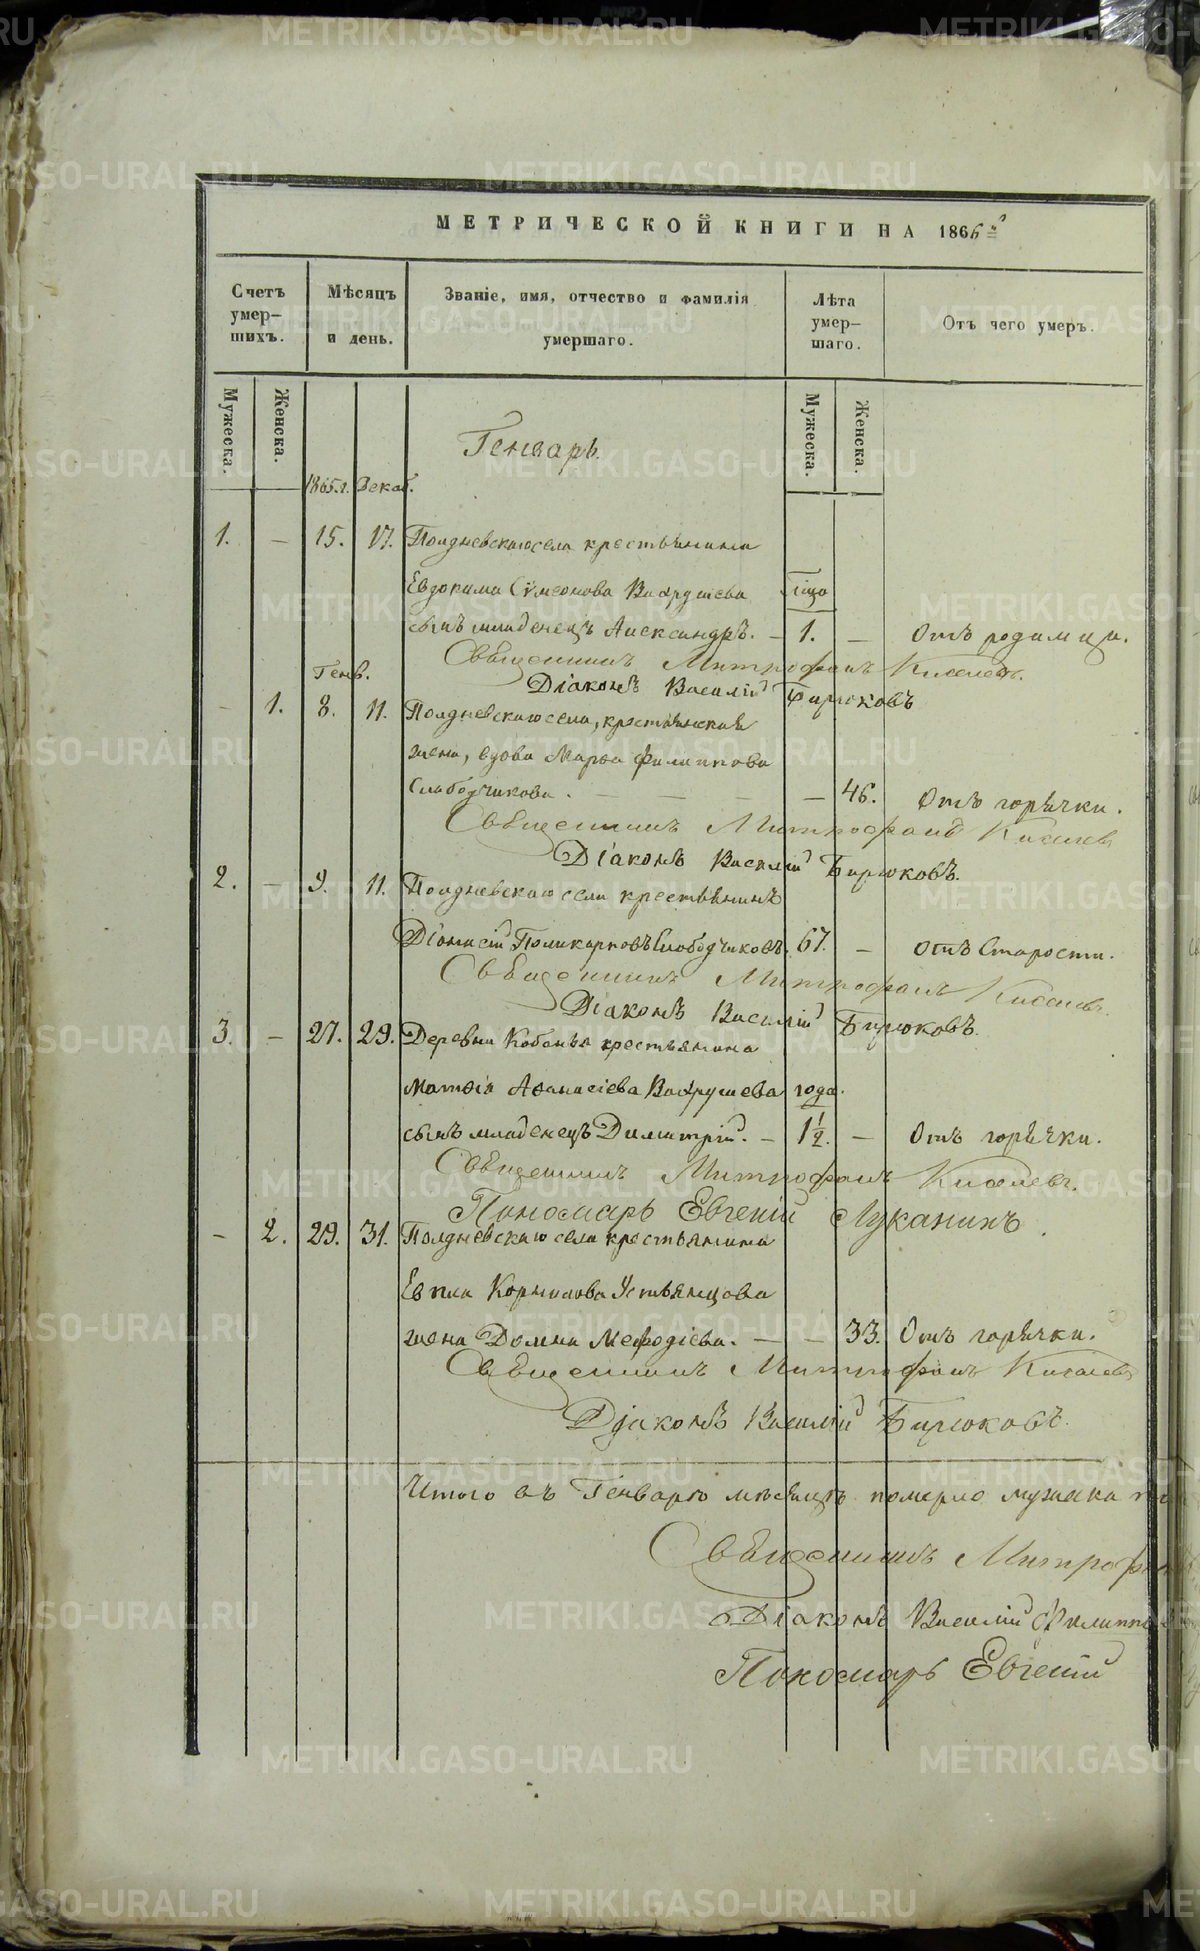 МЕТРИЧЕСКОЙ КНИГИ НА 1866 й
Счетъ умер-шихъ.
Мѣсяцъ и день.
Званіе, имя, отчество и фамилія умершаго.
Лѣта умер-шаго.
Отъ чего умеръ.
Мужеска.
Женска.
Мужеска.
Женска.
Генварь.
1865.г. Декаб.
1. — 15. 17. Полдневскаго села крестьянина
Евдокима Сѵмеонова Вахрушева
сынъ младенецъ Александръ. — 1. — Отъ родимца.
Священникъ Митрофанъ Киселевъ.
Генв.
Діаконъ Василій Бирюковъ
— 1. 8. 11. Полдневскаго села, крестьянская
жена, вдова Марѳа Филиппова
Слабодчикова. — — — — 46. Отъ горячки.
Священникъ Митрофанъ Киселев
Діаконъ Василій Бирюковъ.
2. — 9. 11. Полдневскаго села крестьянинъ
Діонисій Поликарповъ Слободчиковъ. 67. — отъ Старости.
Священникъ Митрофанъ Киселевъ.
Діаконъ Василій Бирюковъ.
3. — 27. 29. Деревни Кобанья крестьянина
Матѳіа Аѳанасіева Вахрушева года.
сынъ младенецъ Димитрій. — 1½. — Отъ горячки.
Священникъ Митрофанъ Киселевъ.
Пономарь Евгеній Луканинъ.
— 2. 29. 31. Полдневскаго села крестьянина
Евпла Корнилова Устьянцова
жена Домна Мефодіева. — — 33. Отъ горячки.
Священникъ Митрофанъ Киселевъ
Діаконъ Василій Бирюковъ.
Итого въ Генварѣ мѣсяцѣ померло мужеска
Священникъ Митрофан
Діаконъ Василій Филиппо
Пономарь Евгеній
METRIKI.GASO-URAL.RU